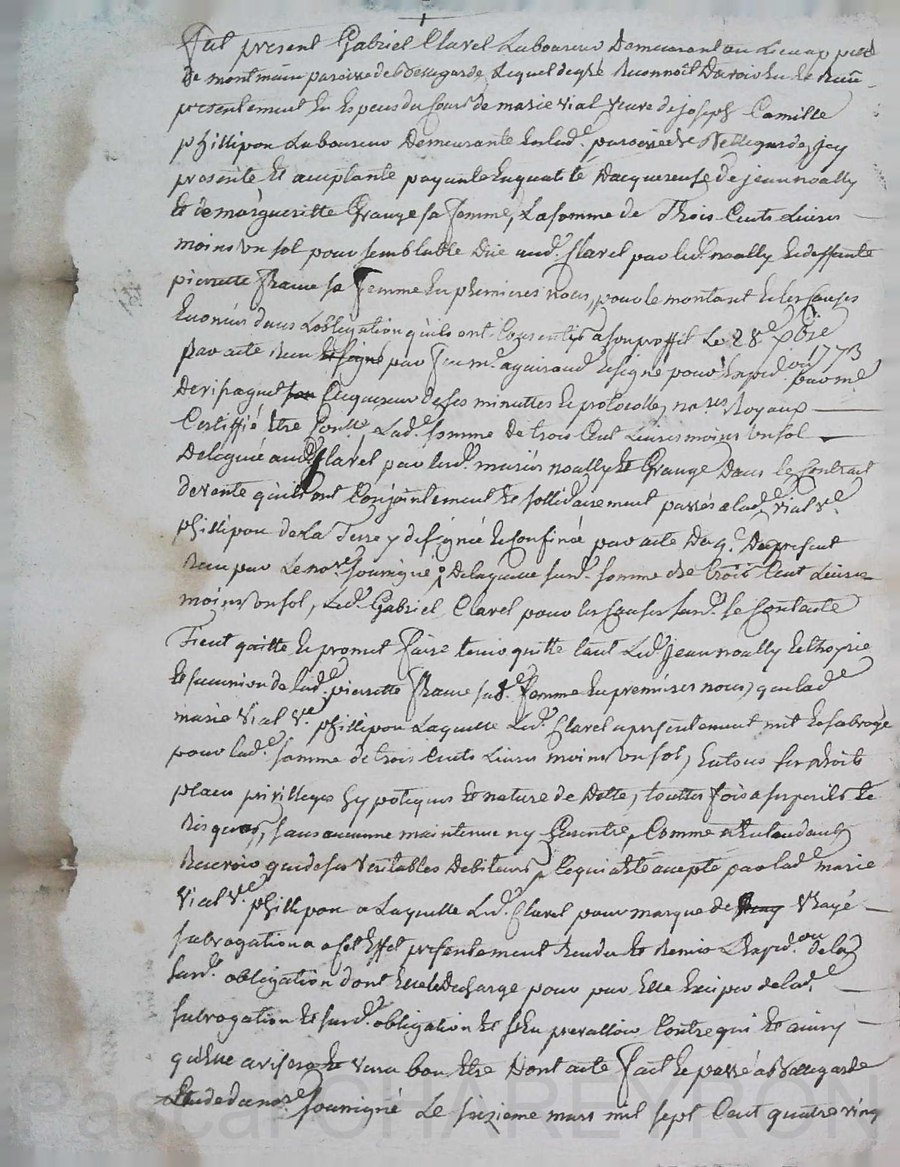 Fut present Gabriel Clavel Laboureur Demeurant au Lieu au pied
de montmain paroisse de Bellegarde, Lequel de gré Reconnoit avoir Eu et Receu
presentement En Especes du Cours de marie Vial veuve de joseph Camille
phillipon Laboureur Demeurante En lad.e paroisse de Bellegarde, jcy
presente et acceptante payante En qualité D'acquereuse de jean noally
et de margueritte Grange sa femme, La somme de Trois Cents Livres
moins un sol pour semblable Due aud. Clavel par led. noally et deffunte
pierrette Thave sa Femme En premieres noces, pour le montant et les Causes
Enonces dans L'obligation qu'ils ont Consentie a son proffit Le 28e Xbre 1773
par acte Receu par feu me. aguiraud et signé pour Exped.on par me
acquereur de ses minuttes et protocolles, no.res Royaux
Certiffié Etre Lad.e somme de trois Cent Livres moins un sol
Deleguée aud. Clavel par lesd. mariés noally et Grange Dans le Contrait
de vente qu'ils ont Conjointement et sollidairement passés a lad.e Vial v.e
phillipon de La Terre y désignée et Confinée par acte Du présent
Receu par Le no.re soussigné, De laquelle susd. somme de trois Cent Livres
moins un sol, Led. Gabriel Clavel pour les Causes susd. se Contente
Tient quitte et promet Faire tenir quitte tant Led. jean noally et
et de lad.e pierrette Thave sad.e Femme En premières noces, que lad.e
marie Vial v.e phillipon Laquelle Led. Clavel a présentement mit et subrogé
pour lad.e somme de trois Cents Livres moins un sol, En tous ses droits
place privilleges hypoteques et nature de Dette, touttes fois a ses perils et
Risques, sans aucunne maintenue ny Garentie, Comme
que de ses veritables Debiteurs, Ce qui a été accepté par lad.e marie
Vial v.e phillipon a Laquelle Led. Clavel pour marque de
subrogation a a cet Effet présentement Rendu et Remis L'Exped.on de la
susd. obligation dont Elle le Decharge pour par Elle de lad.
subrogation et susd. obligation et s'En prevalloir Contre qui et ainsy
qu'elle avisera et verra bon Etre Dont acte Fait et passé a Bellegarde
Etude du no.re soussigné Le seizieme mars mil sept Cent quatre ving
Pascal CHAREYRON